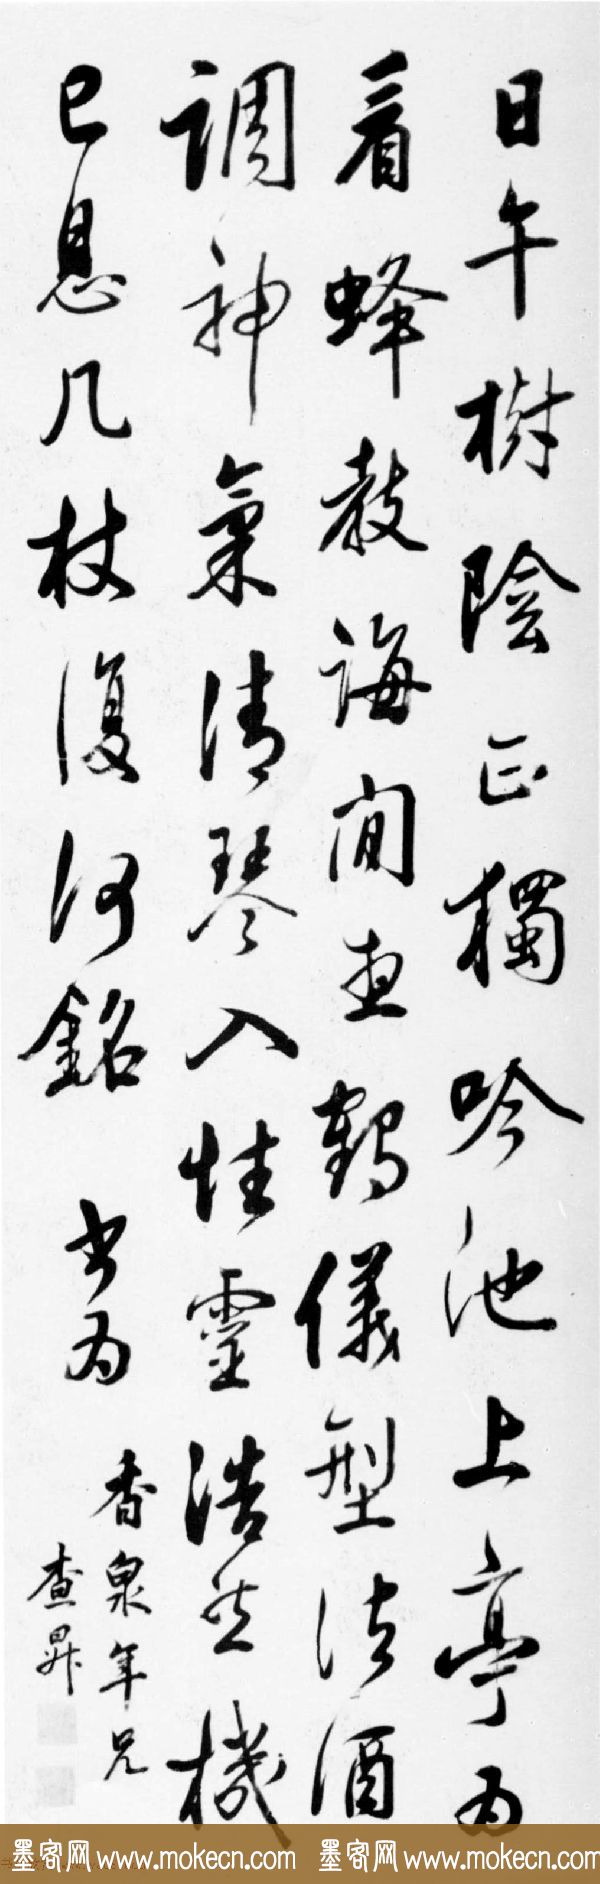 日午樹陰正獨吟池上亭為
看蜂教誨閒鶴儀型法酒
調神氣清琴入性靈浩然機
已息几杖復何銘 書為
香泉年兄
查昇
墨客网 www.mokecn.com 墨客网 www.mokecn.com